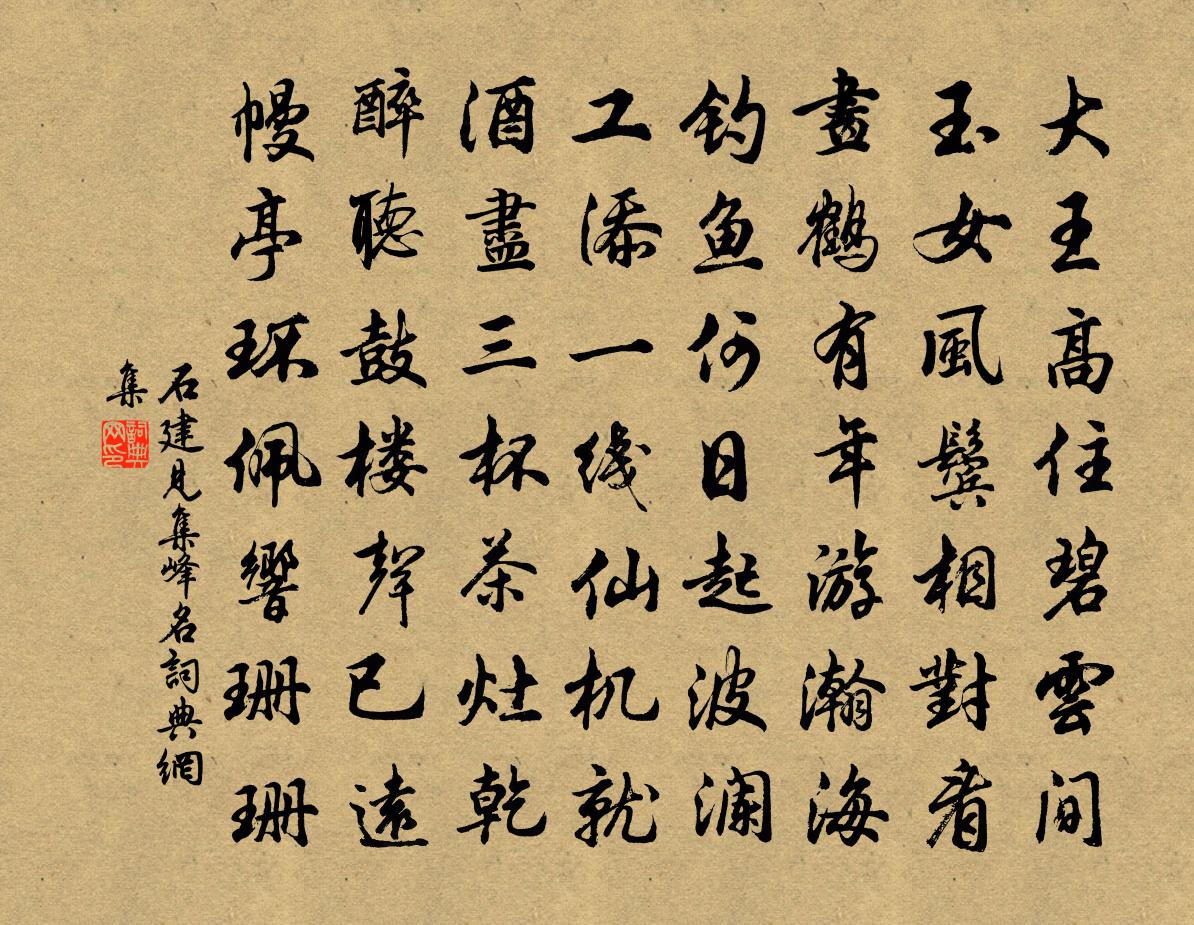 大王高住碧雲間
玉女風鬟相對看
畫鶴有年游瀚海
钓鱼何日起波澜
工添一线仙机就
酒盡三杯茶灶乾
醉聽鼓楼聲已遠
幔亭环佩響珊珊
石建見集峰名詞典網
集
詞典网印